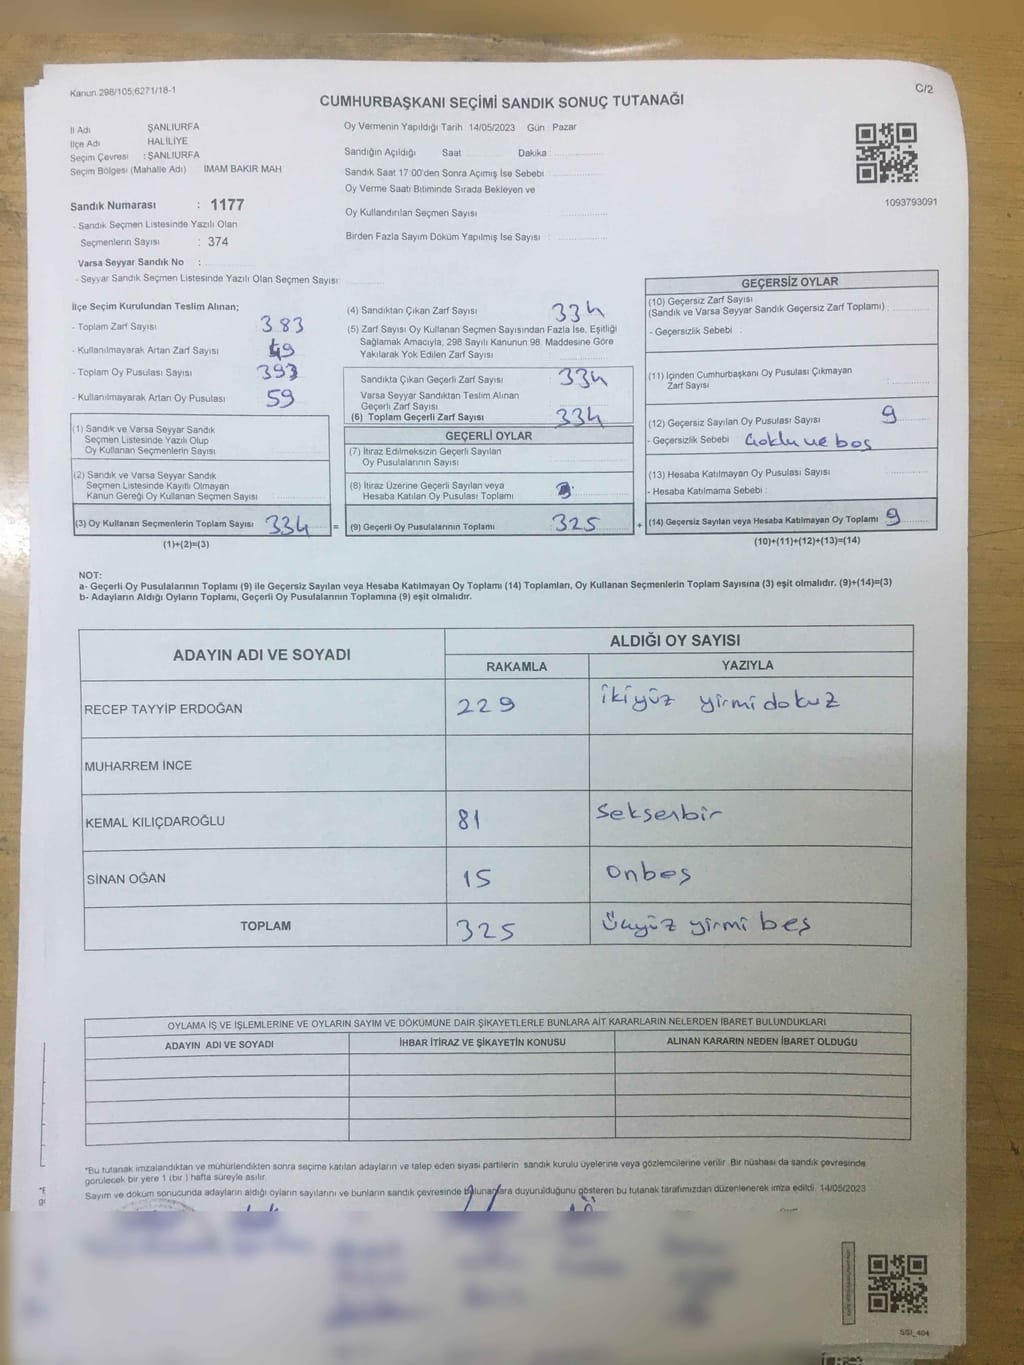 Kanun 298/105;6271/18-1
C/2
CUMHURBAŞKANI SEÇİMİ SANDIK SONUÇ TUTANAĞI
İl Adı ŞANLIURFA
İlçe Adı HALİLİYE
Seçim Çevresi : ŞANLIURFA
Seçim Bölgesi (Mahalle Adı) IMAM BAKIR MAH
Sandık Numarası : 1177
- Sandık Seçmen Listesinde Yazılı Olan
Seçmenlerin Sayısı : 374
Varsa Seyyar Sandık No :
- Seyyar Sandık Seçmen Listesinde Yazılı Olan Seçmen Sayısı:
Oy Vermenin Yapıldığı Tarih 14/05/2023 Gün : Pazar
Sandığın Açıldığı Saat Dakika
Sandık Saat 17 00'den Sonra Açımış İse Sebebi
Oy Verme Saati Bitiminde Sırada Bekleyen ve
Oy Kullandırılan Seçmen Sayısı
Birden Fazla Sayım Döküm Yapılmış İse Sayısı :
1093793091
İlçe Seçim Kurulundan Teslim Alınan;
- Toplam Zarf Sayısı 383
- Kullanılmayarak Artan Zarf Sayısı 49
- Toplam Oy Pusulası Sayısı 393
- Kullanılmayarak Artan Oy Pusulası 59
(1) Sandık ve Varsa Seyyar Sandık
Seçmen Listesinde Yazılı Olup
Oy Kullanan Seçmenlerin Sayısı
(2) Sandık ve Varsa Seyyar Sandık
Seçmen Listesinde Kayıtlı Olmayan
Kanun Gereği Oy Kullanan Seçmen Sayısı
(3) Oy Kullanan Seçmenlerin Toplam Sayısı 334 =
(1)+(2)=(3)
(4) Sandıktan Çıkan Zarf Sayısı 334
(5) Zarf Sayısı Oy Kullanan Seçmen Sayısından Fazla İse, Eşitliği
Sağlamak Amacıyla, 298 Sayılı Kanunun 98. Maddesine Göre
Yakılarak Yok Edilen Zarf Sayısı
Sandıkta Çıkan Geçerli Zarf Sayısı 334
Varsa Seyyar Sandıktan Teslim Alınan
Geçerli Zarf Sayısı
(6) Toplam Geçerli Zarf Sayısı 334
GEÇERLİ OYLAR
(7) İtiraz Edilmeksizin Geçerli Sayılan
Oy Pusulalarının Sayısı
(8) İtiraz Üzerine Geçerli Sayılan veya
Hesaba Katılan Oy Pusulası Toplamı
(9) Geçerli Oy Pusulalarının Toplamı 325 +
GEÇERSİZ OYLAR
(10) Geçersiz Zarf Sayısı
(Sandık ve Varsa Seyyar Sandık Geçersiz Zarf Toplamı) :
- Geçersizlik Sebebi :
(11) İçinden Cumhurbaşkanı Oy Pusulası Çıkmayan
Zarf Sayısı
(12) Geçersiz Sayılan Oy Pusulası Sayısı 9
- Geçersizlik Sebebi Çoklu ve boş
(13) Hesaba Katılmayan Oy Pusulası Sayısı
- Hesaba Katılmama Sebebi :
(14) Geçersiz Sayılan veya Hesaba Katılmayan Oy Toplamı 9
(10)+(11)+(12)+(13)=(14)
NOT:
a- Geçerli Oy Pusulalarının Toplamı (9) ile Geçersiz Sayılan veya Hesaba Katılmayan Oy Toplamı (14) Toplamları, Oy Kullanan Seçmenlerin Toplam Sayısına (3) eşit olmalıdır. (9)+(14)=(3)
b- Adayların Aldığı Oyların Toplamı, Geçerli Oy Pusulalarının Toplamına (9) eşit olmalıdır.
ADAYIN ADI VE SOYADI
ALDIĞI OY SAYISI
RAKAMLA YAZIYLA
RECEP TAYYİP ERDOĞAN 229 ikiyüz yirmi dokuz
MUHARREM İNCE
KEMAL KILIÇDAROĞLU 81 Seksenbir
SİNAN OĞAN 15 Onbeş
TOPLAM 325 Üçyüz yirmi beş
OYLAMA İŞ VE İŞLEMLERİNE VE OYLARIN SAYIM VE DÖKÜMÜNE DAİR ŞİKAYETLERLE BUNLARA AİT KARARLARIN NELERDEN İBARET BULUNDUKLARI
ADAYIN ADI VE SOYADI İHBAR İTİRAZ VE ŞİKAYETİN KONUSU ALINAN KARARIN NEDEN İBARET OLDUĞU
*Bu tutanak imzalandıktan ve mühürlendikten sonra seçime katılan adayların ve talep eden siyasi partilerin sandık kurulu üyelerine veya gözlemcilerine verilir. Bir nüshası da sandık çevresinde
görülecek bir yere 1 (bir ) hafta süreyle asılır.
Sayım ve döküm sonucunda adayların aldığı oyların sayılarını ve bunların sandık çevresinde bulunanlara duyurulduğunu gösteren bu tutanak tarafımızdan düzenlenerek imza edildi. 14/05/2023
SSI_404